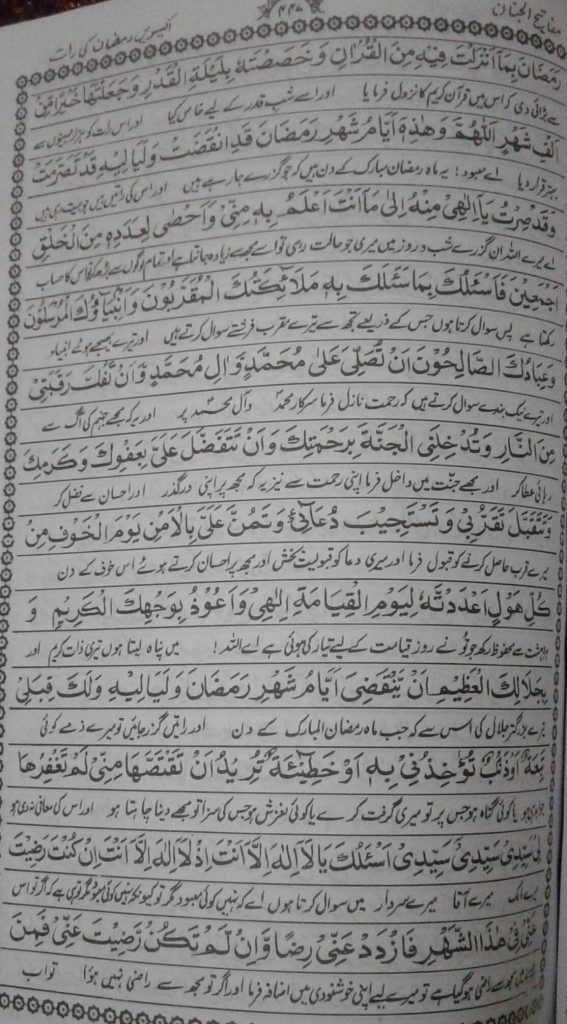 مفاتیح الجنان ۴۴۷ اکیسویں رمضان کی رات
رَمَضَانَ بِمَا اَنْزَلْتَ فِيْهِ مِنَ الْقُرْاٰنِ وَخَصَصْتَهٗ بِلَيْلَةِ الْقَدْرِ وَجَعَلْتَهَا خَيْرًا مِّنْ
سے بڑائی دی کہ اس میں قرآن کریم کا نزول فرمایا اور اسے شب قدر کے لیے خاص کیا اور اس رات کو ہزار مہینوں سے
اَلْفِ شَهْرٍ اَللّٰهُمَّ وَهٰذِهٖ اَيَّامُ شَهْرِ رَمَضَانَ قَدِ انْقَضَتْ وَلَيَالِيْهِ قَدْ تَصَرَّمَتْ
بہتر قرار دیا اے معبود! یہ ماہ رمضان مبارک کے دن ہیں کہ جو گزرے جا رہے ہیں اور اس کی راتیں ہیں جو بیت رہی ہیں
وَقَدْ صِرْتُ يَا اِلٰهِيْ مِنْهُ اِلٰى مَا اَنْتَ اَعْلَمُ بِهٖ مِنِّيْ وَاَحْصٰى لِعَدَدِهٖ مِنَ الْخَلْقِ
اے میرے اللہ ان گزرے شب و روز میں میری جو حالت رہی تو اسے مجھ سے زیادہ جانتا ہے اور تمام لوگوں سے بڑھ کر اس کا حساب
اَجْمَعِيْنَ فَاَسْئَلُكَ بِمَا سَئَلَكَ بِهٖ مَلَائِكَتُكَ الْمُقَرَّبُوْنَ وَاَنْبِيَاؤُكَ الْمُرْسَلُوْنَ
رکھتا ہے پس سوال کرتا ہوں جس کے ذریعے تجھ سے تیرے مقرب فرشتے سوال کرتے ہیں اور تیرے بھیجے ہوئے انبیاء
وَعِبَادُكَ الصَّالِحُوْنَ اَنْ تُصَلِّيَ عَلٰى مُحَمَّدٍ وَّاٰلِ مُحَمَّدٍ وَاَنْ تَفُكَّ رَقَبَتِيْ
اور تیرے نیک بندے سوال کرتے ہیں کہ رحمت نازل فرما سرکار محمدؐ و آل محمدؑ پر اور یہ کہ مجھے جہنم کی آگ سے
مِنَ النَّارِ وَتُدْخِلَنِي الْجَنَّةَ بِرَحْمَتِكَ وَاَنْ تَتَفَضَّلَ عَلَيَّ بِعَفْوِكَ وَكَرَمِكَ
رہائی عطا کر اور مجھے جنت میں داخل فرما اپنی رحمت سے نیز یہ کہ مجھ پر اپنی درگذر اور احسان سے فضل کر
وَتَتَقَبَّلَ تَقَرُّبِيْ وَتَسْتَجِيْبَ دُعَائِيْ وَتَمُنَّ عَلَيَّ بِالْاَمْنِ يَوْمَ الْخَوْفِ مِنْ
میرے قرب حاصل کرنے کو قبول فرما اور میری دعا کو قبولیت بخش اور مجھ پر احسان کرتے ہوئے اس خوف کے دن
كُلِّ هَوْلٍ اَعْدَدْتَهٗ لِيَوْمِ الْقِيَامَةِ اِلٰهِيْ وَاَعُوْذُ بِوَجْهِكَ الْكَرِيْمِ وَ
سے محفوظ رکھ جو تو نے روز قیامت کے لیے تیار کی ہوئی ہے اے اللہ! میں پناہ لیتا ہوں تیری ذات کریم اور
بِجَلَالِكَ الْعَظِيْمِ اَنْ تَنْقَضِيَ اَيَّامُ شَهْرِ رَمَضَانَ وَلَيَالِيْهِ وَلَكَ قِبَلِيْ
تیرے بزرگتر جلال کی اس سے کہ جب ماہ رمضان المبارک کے دن اور راتیں گزر جائیں تو میرے ذمے کوئی
تَبِعَةٌ اَوْ ذَنْبٌ تُؤَاخِذُنِيْ بِهٖ اَوْ خَطِيْئَةٌ تُرِيْدُ اَنْ تَقْتَصَّهَا مِنِّيْ لَمْ تَغْفِرْهَا
جوابدہی ہو یا کوئی گناہ ہو جس پر تو میری گرفت کرے یا کوئی لغزش ہو جس کی سزا تو مجھے دینا چاہتا ہو اور اس کی معافی نہ دی ہو
لِيْ سَيِّدِيْ سَيِّدِيْ سَيِّدِيْ اَسْئَلُكَ يَا لَا اِلٰهَ اِلَّا اَنْتَ اِذْ لَا اِلٰهَ اِلَّا اَنْتَ اِنْ كُنْتَ رَضِيْتَ
میرے آقا میرے سردار میں سوال کرتا ہوں اے کہ نہیں کوئی معبود مگر تو کیونکہ نہیں کوئی معبود مگر تو ہی ہے کہ اگر تو اس
عَنِّيْ فِيْ هٰذَا الشَّهْرِ فَازْدَدْ عَنِّيْ رِضًا وَّاِنْ لَمْ تَكُنْ رَضِيْتَ عَنِّيْ فَمِنَ
مجھ سے راضی ہو گیا ہے تو میرے لیے اپنی خوشنودی میں اضافہ فرما اور اگر تو مجھ سے راضی نہیں ہوا تو اب